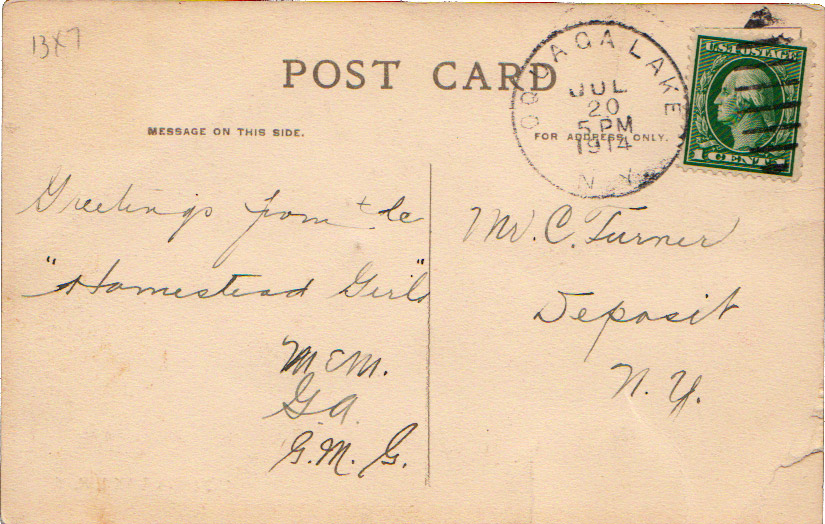 13x7
POST CARD
OQUAGA LAKE
JUL
20
5 PM
1914
N. Y.
U.S. POSTAGE
1 CENT 1
MESSAGE ON THIS SIDE.
FOR ADDRESS ONLY.
Greetings from the
"Homestead Girls"
M E M.
G A
G. M. G.
Mr. C. Turner
Deposit
N. Y.